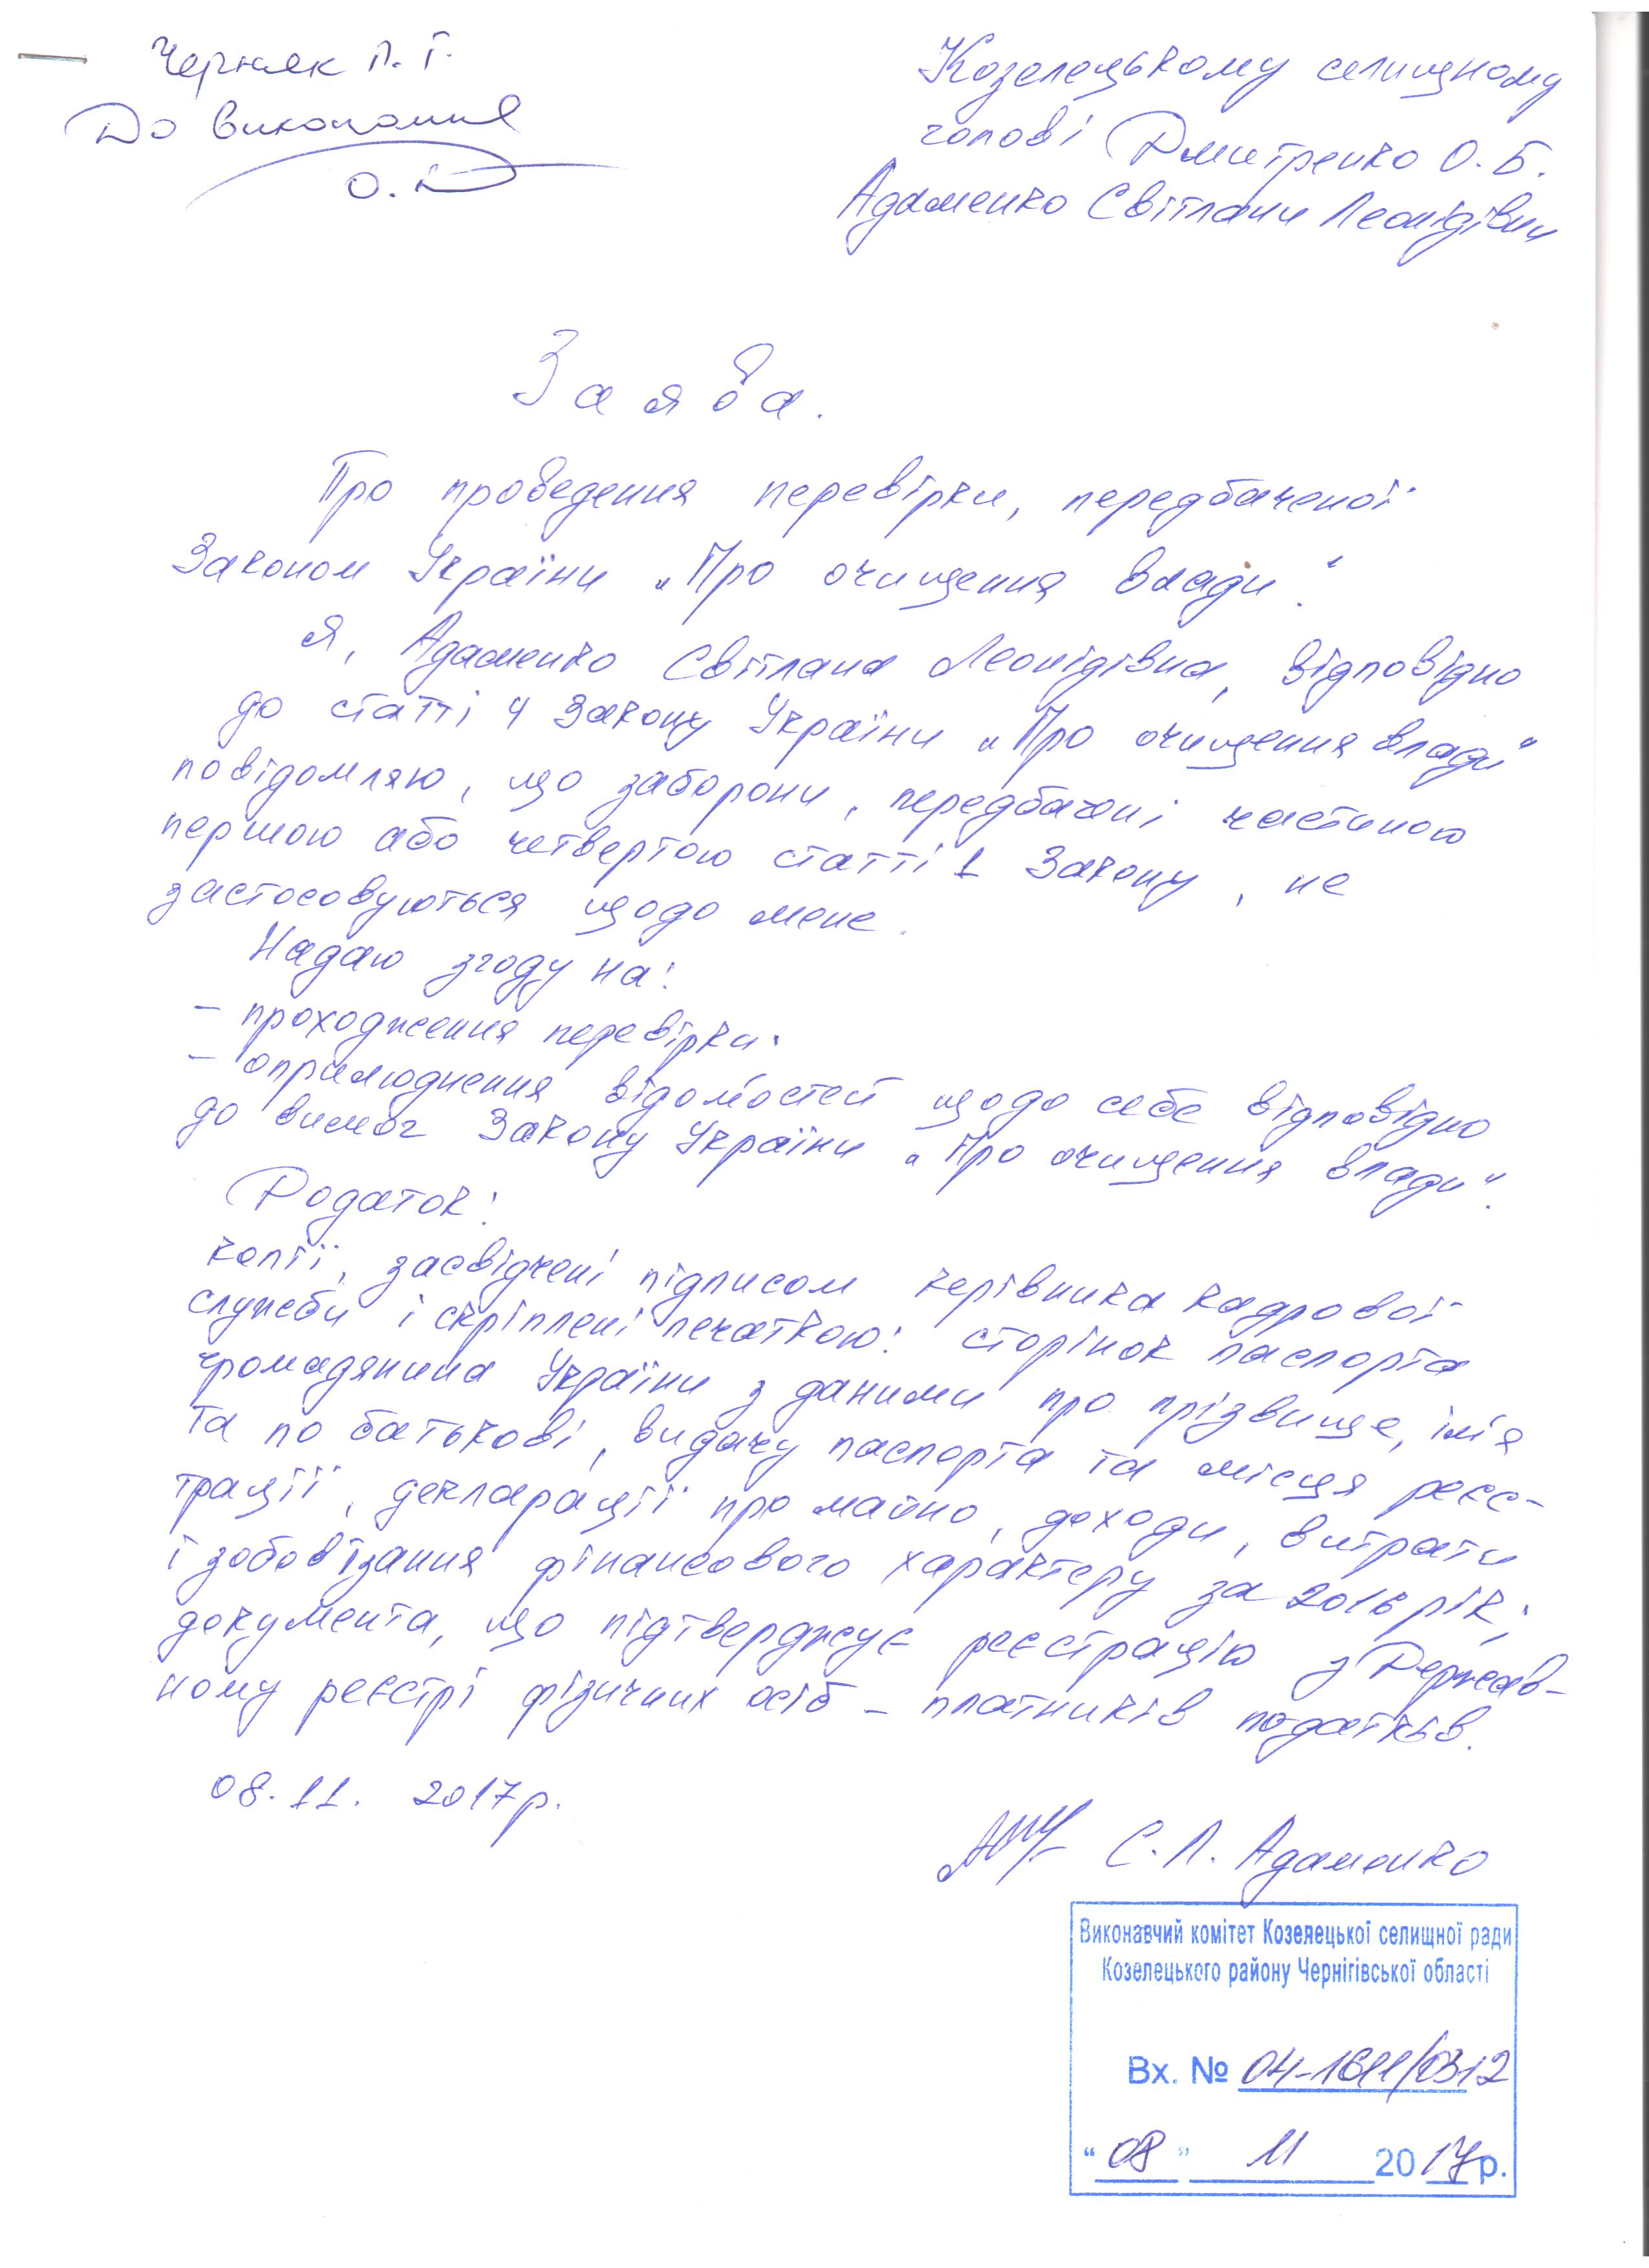 Черняк Л. Г.
До виконання
Козелецькому селищному
голові Дмитренко О. Б.
Адаменко Світлани Леонідівни
Заява.
Про проведення перевірки, передбаченої
Законом України „Про очищення влади".
Я, Адаменко Світлана Леонідівна, відповідно
до статті 4 Закону України „Про очищення влади"
повідомляю, що заборони, передбачені частиною
першою або четвертою статті 1 Закону, не
застосовуються щодо мене.
Надаю згоду на:
- проходження перевірки.
- оприлюднення відомостей щодо себе відповідно
до вимог Закону України „Про очищення влади".
Додаток:
копії, засвідчені підписом керівника кадрової
служби і скріплені печаткою: сторінок паспорта
громадянина України з даними про прізвище, ім'я
та по батькові, видачу паспорта та місця реєс-
трації, декларації про майно, доходи, витрати
і зобов'язання фінансового характеру за 2016 рік;
документа, що підтверджує реєстрацію у Держав-
ному реєстрі фізичних осіб - платників податків.
08.11. 2017р.
С. Л. Адаменко
Виконавчий комітет Козелецької селищної ради
Козелецького району Чернігівської області
Вх. № 04-1611/0312
"08" 11 2017р.